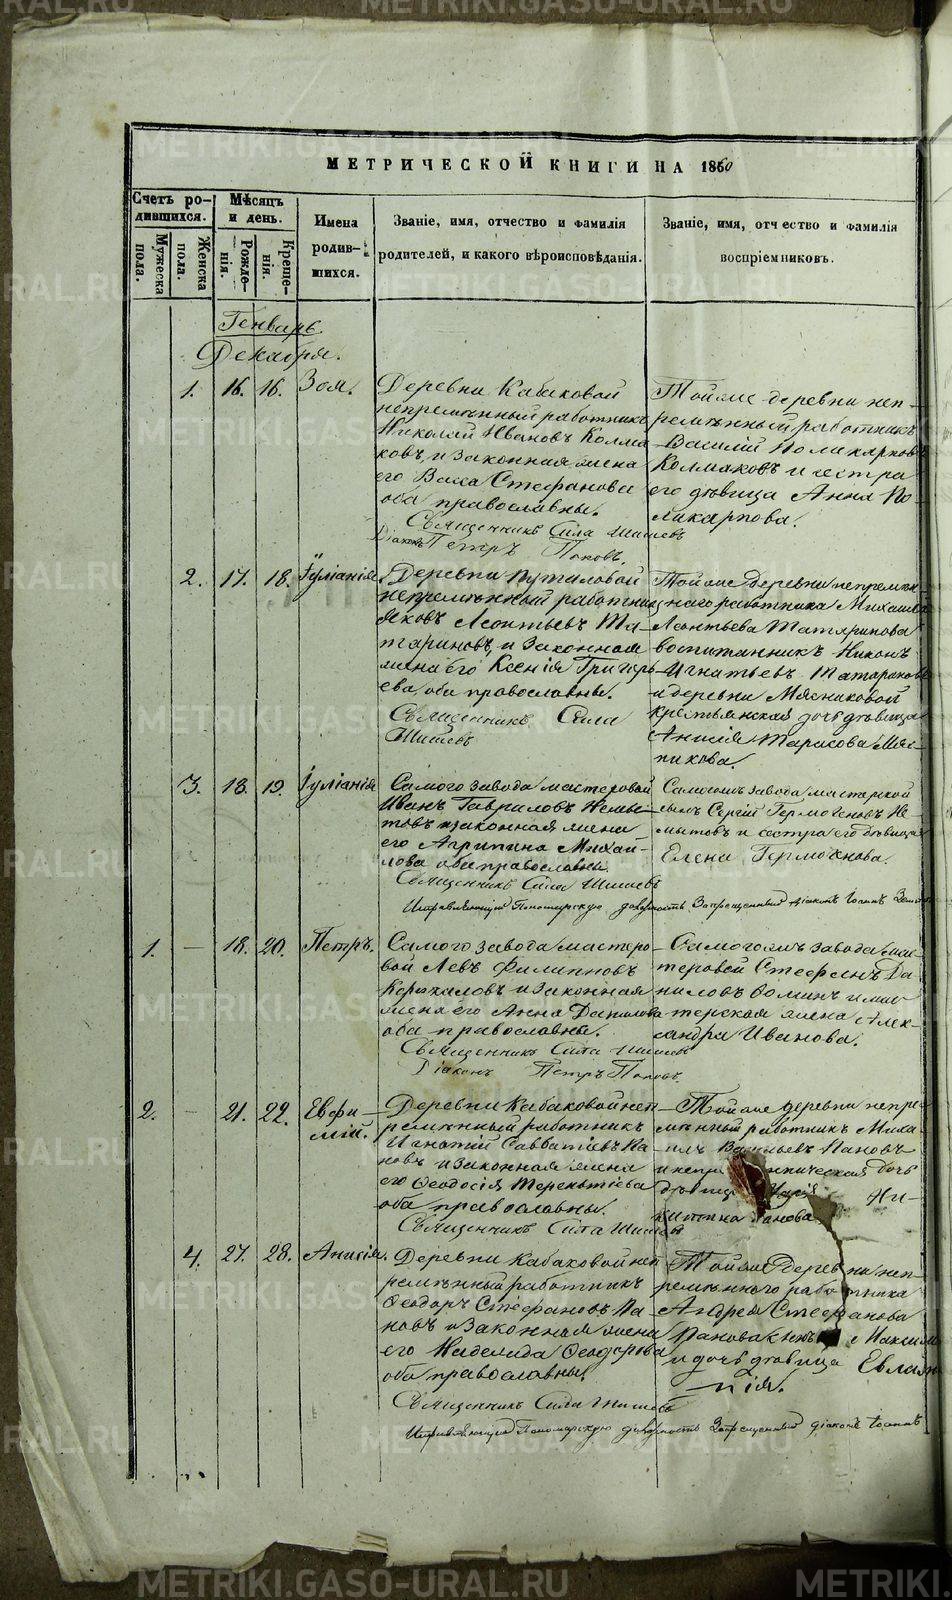 МЕТРИЧЕСКОЙ КНИГИ НА 1860
Счетъ ро-
дившихся.
Мужеска
пола.
Женска
пола.
Мѣсяцъ
и день.
Рожде-
нія.
Креще-
нія.
Имена
родив-
шихся.
Званіе, имя, отчество и фамилія
родителей, и какого вѣроисповѣданія.
Званіе, имя, отчество и фамилія
воспріемниковъ.
Генварь
Декабря.
1. 16. 16. Зоя.
Деревни Кабаковой
непремѣнный работникъ
Николай Ивановъ Колма
ковъ, и законная жена
его Васса Стефанова
оба православны.
Священникъ Сила Шишевъ
Діаконъ Петръ Поповъ.
Тойже деревни неп-
ремѣнный работникъ
Василій Поликарповъ
Колмаковъ и сестра
его дѣвица Анна По
ликарпова.
2. 17. 18. Іуліанія.
Деревни Путиловой
непремѣнный работникъ
Яковъ Леонтьевъ Та-
тариновъ, и законная
жена его Ксенія Григорь
ева, оба православны.
Священникъ Сила
Шишевъ
Тойже деревни непремѣн
наго работника Михаила
Леонтьева Татаринова
воспитанникъ Никонъ
Игнатьевъ Татариновъ
и деревни Мясниковой
крестьянская дочь дѣвица
Анисія Тарасова Мяс-
никова.
3. 18. 19. Іуліанія
Самого завода мастеровой
Иванъ Гавриловъ Немы-
товъ и законная жена
его Агрипина Михаи-
лова оба православны.
Священникъ Сила Шишевъ
Исправляющій Пономарскую должность Запрещенный діаконъ Іоаннъ
Самогожъ завода мастерской
сынъ Сергій Гермогеновъ Не-
мытовъ и сестра его дѣвица
Елена Гермогенова.
1. — 18. 20. Петръ.
Самого завода мастеро-
вой Левъ Филипповъ
законная
жена его Анна Данилова
оба православны.
Священникъ Сила Шишевъ
Діаконъ Петръ Поповъ.
Самогожъ завода мас-
теровой Стефанъ Да-
ниловъ и мас-
терская жена Алек-
сандра Иванова.
2. — 21. 22. Евфи-
мій.
Деревни Кабаковой неп-
ремѣнный работникъ
Игнатій Савватіевъ Па-
новъ и законная жена
его Ѳеодосія Терентіева
оба православны.
Священникъ Сила Шишевъ
Тойже деревни непре-
мѣнный работникъ Миха
илъ Пановъ
и дочь
Ни-
китина Панова
4. 27. 28. Анисія.
Деревни Кабаковой неп
ремѣнный работникъ
Ѳеодоръ Стефановъ Па-
новъ и законная жена
его Надежда Ѳеодорова
оба православны.
Священникъ Сила Шишевъ
Исправляющій Пономарскую должность Запрещенный діаконъ Іоаннъ
Тойже Деревни неп-
ремѣннаго работника
Андрея Стефанова
Панова сынъ Максимъ
и дочь дѣвица Евлам
пія.
METRIKI.GASO-URAL.RU